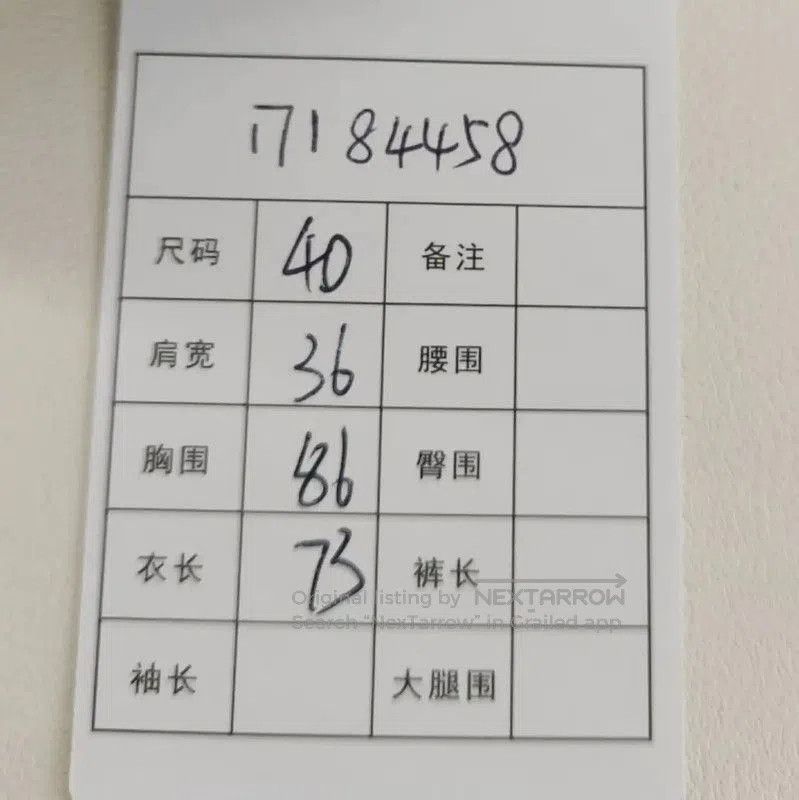 17184458
尺码 40 备注
肩宽 36 腰围
胸围 86 臀围
衣长 73 裤长
Original listing by NEXTARROW
Search "NexTarrow" in Grailed app
袖长 大腿围